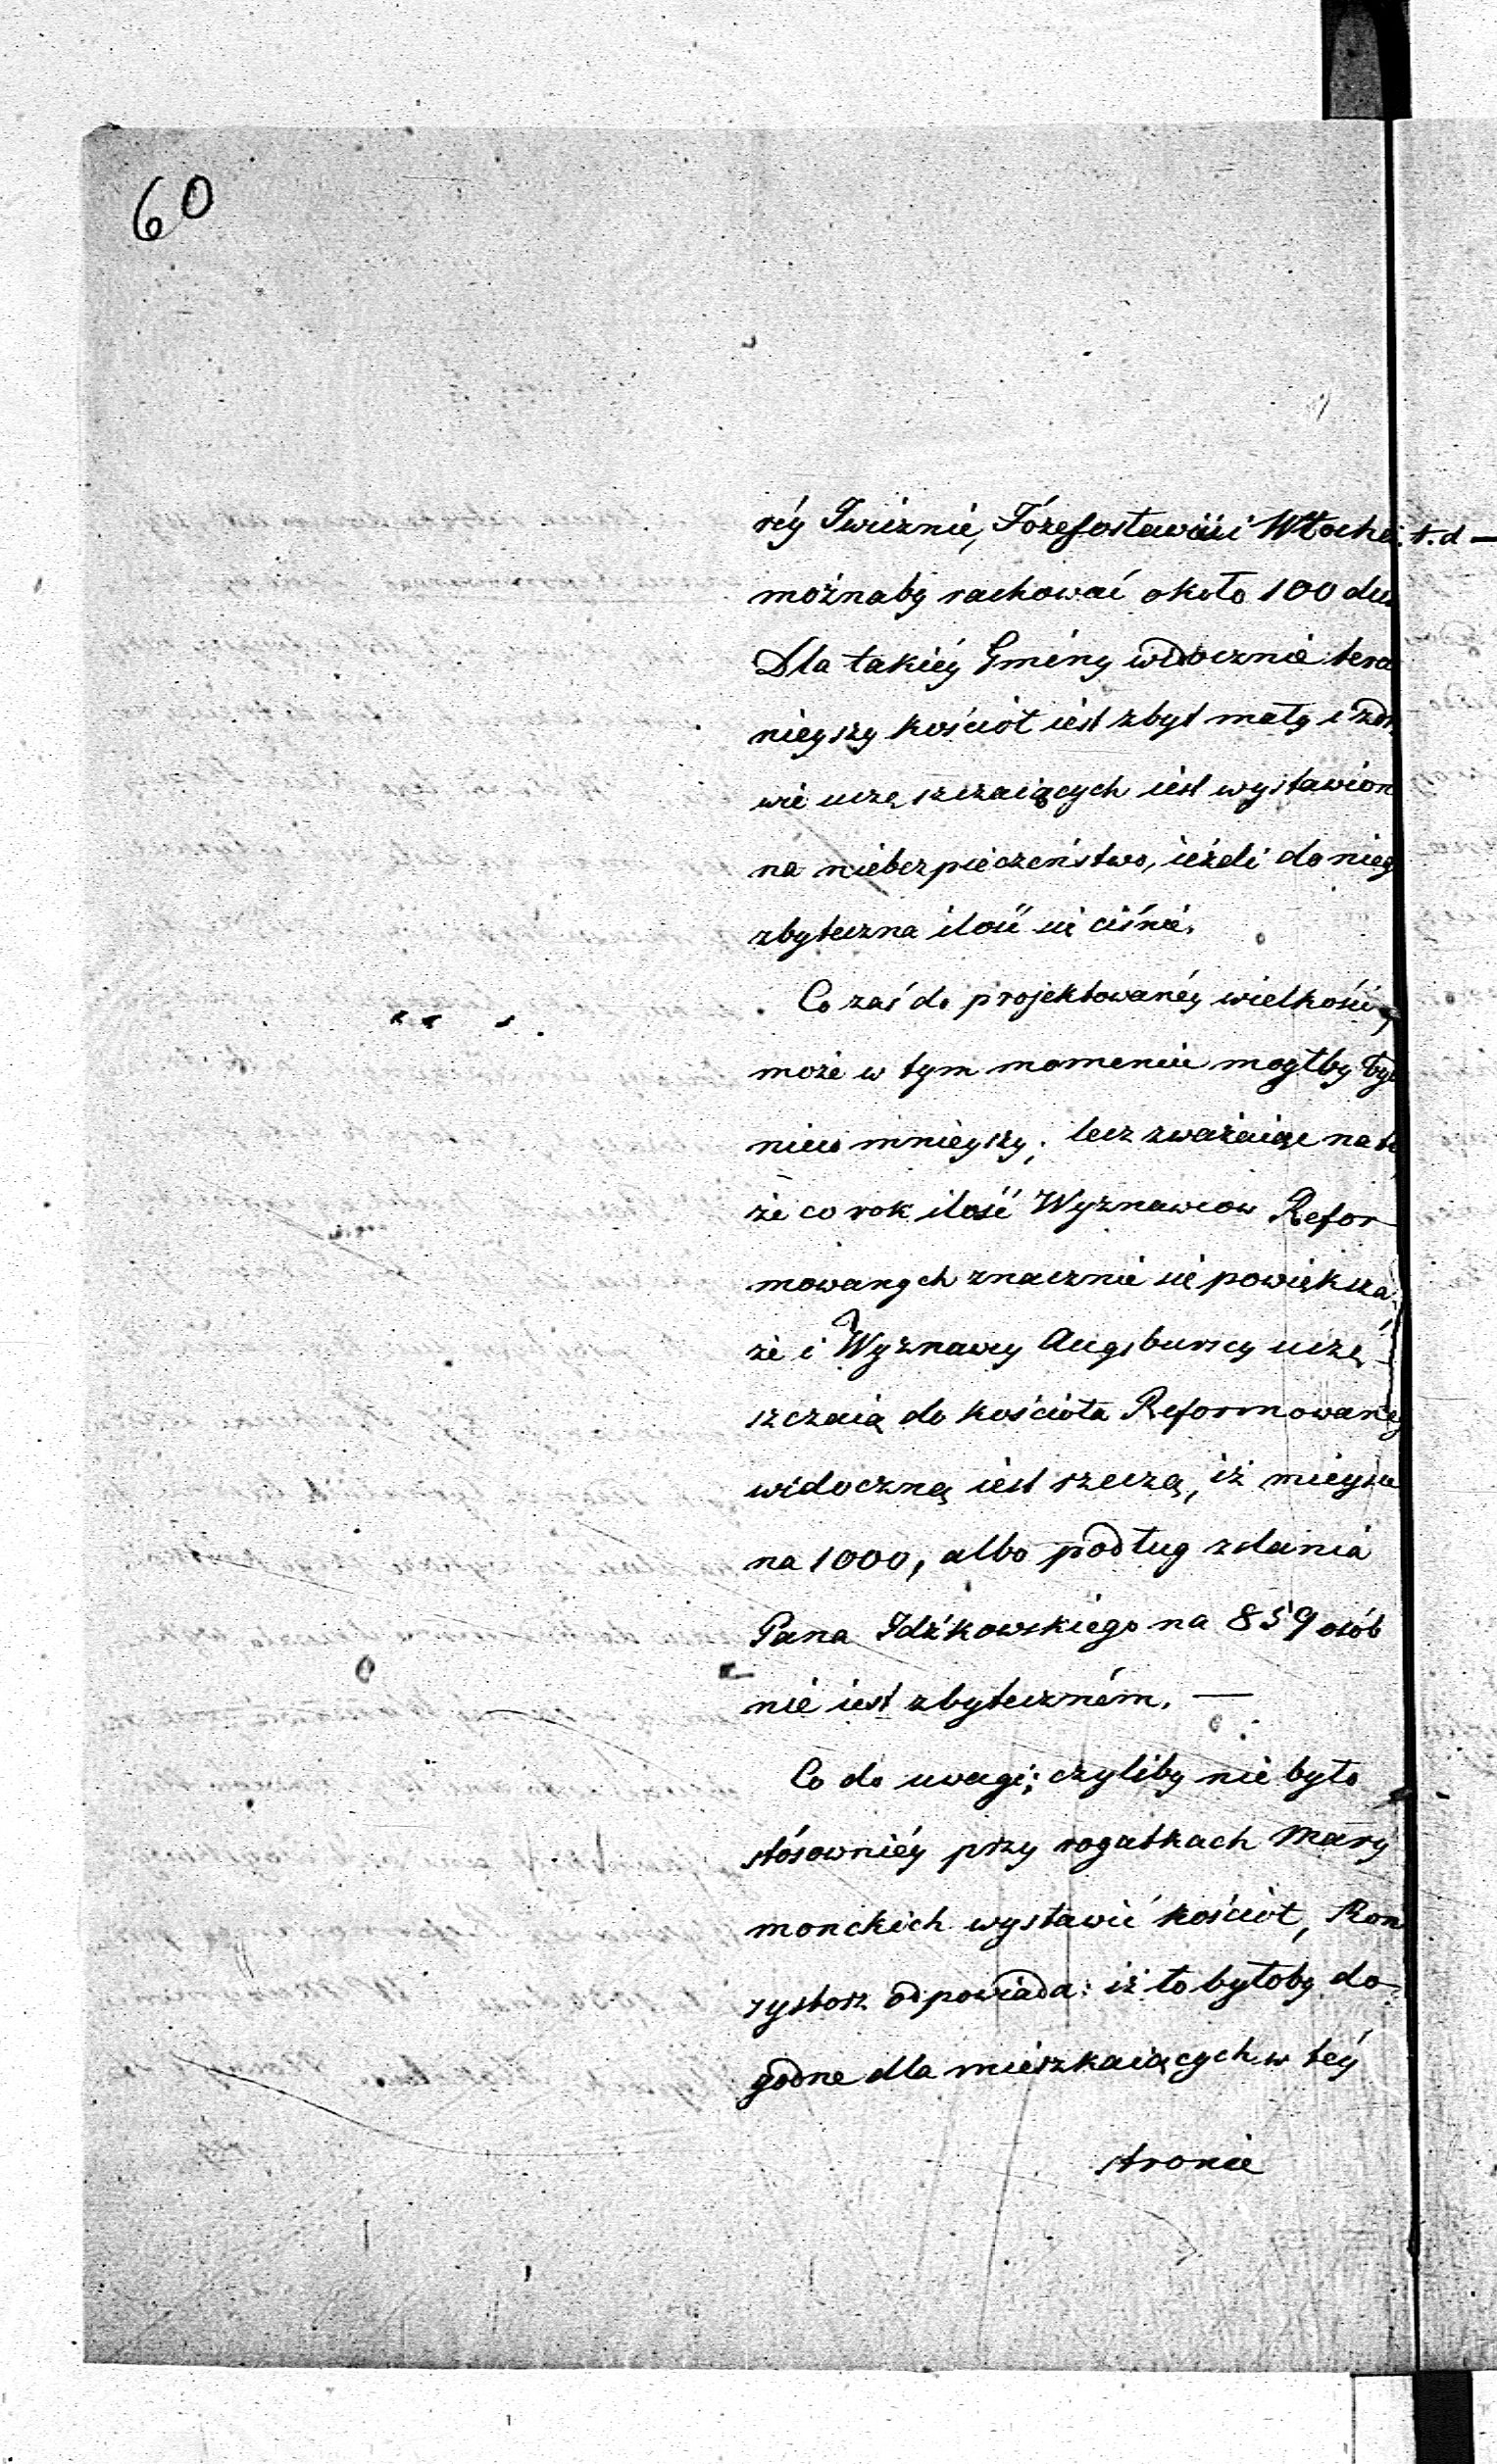 60
réy Iwicznie, Józefosławiu i Włocha i. t. d —
możnaby rachować około 100 dus
Dla takiéy Gminy widocznie tera
nieyszy kościół iest zbyt mały i zdr
wie uczęszczaiących iest wystawion
na niebezpieczeństwo, ieżeli do nieg
zbyteczna ilość się ciśnie.
Co zaś do projektowanéy wielkości,
może w tym momencie mogłby być
nieco mnieyszy; lecz zważaiąc na to
że co rok ilość Wyznawcow Refor
mowanych znacznie się powiększa,
że i Wyznawcy Augsburscy uczę-
szczaią do kościoła Reformowaneg
widoczną iest rzeczą, iż mieysce
na 1000, albo podług zdania
Pana Idźkowskiego na 859 osób
nie iest zbyteczném. —
Co do uwagi; czyliby nie było
stósowniéy przy rogatkach Mary
monckich wystawić kościół, Kon
systorz odpowiada: iż to byłoby do-
godne dla mieszkaiących w téy
stronie